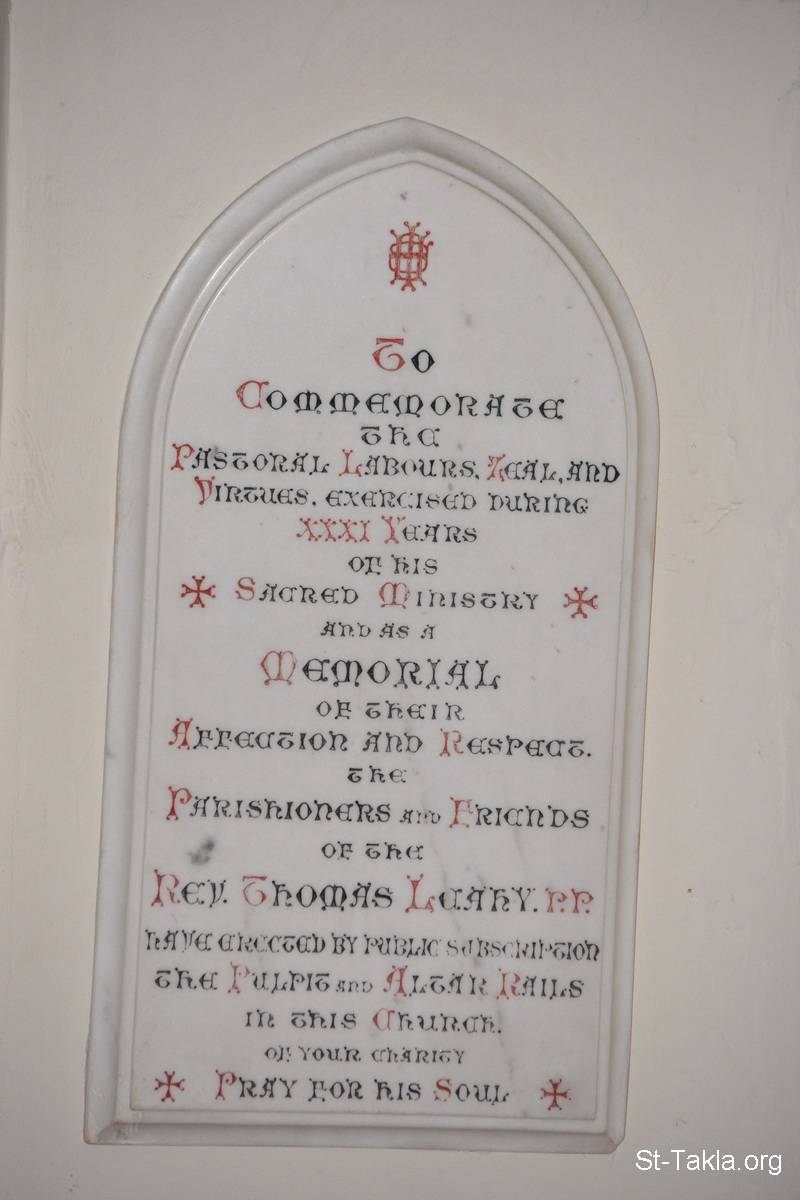 IHS
To
Commemorate
the
Pastoral Labours, Zeal, and
Virtues, exercised during
XXXI Years
of his
Sacred Ministry
and as a
Memorial
of their
Affection and Respect.
the
Parishioners and Friends
of the
Rev. Thomas Leahy. P.P.
have erected by public subscription
the Pulpit and Altar Rails
in this Church.
of your charity
Pray for his Soul
St-Takla.org